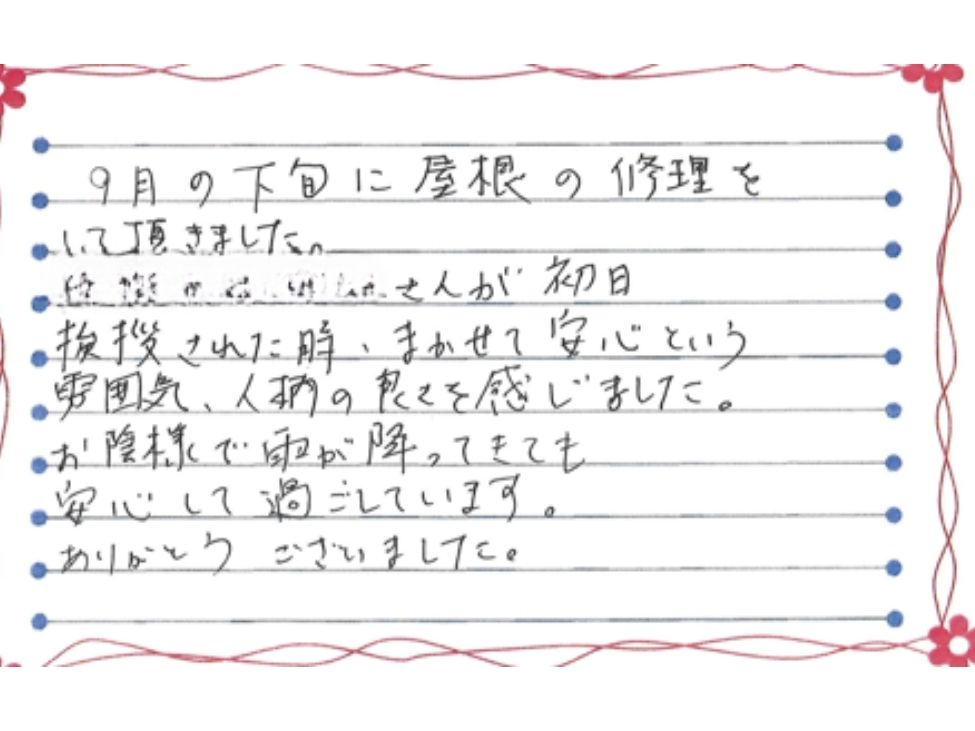 9月の下旬に屋根の修理を
して頂きました。
さんが初日
挨拶された際、まかせて安心という
雰囲気、人柄の良さを感じました。
お陰様で雨が降ってきても
安心して過ごしています。
ありがとうございました。